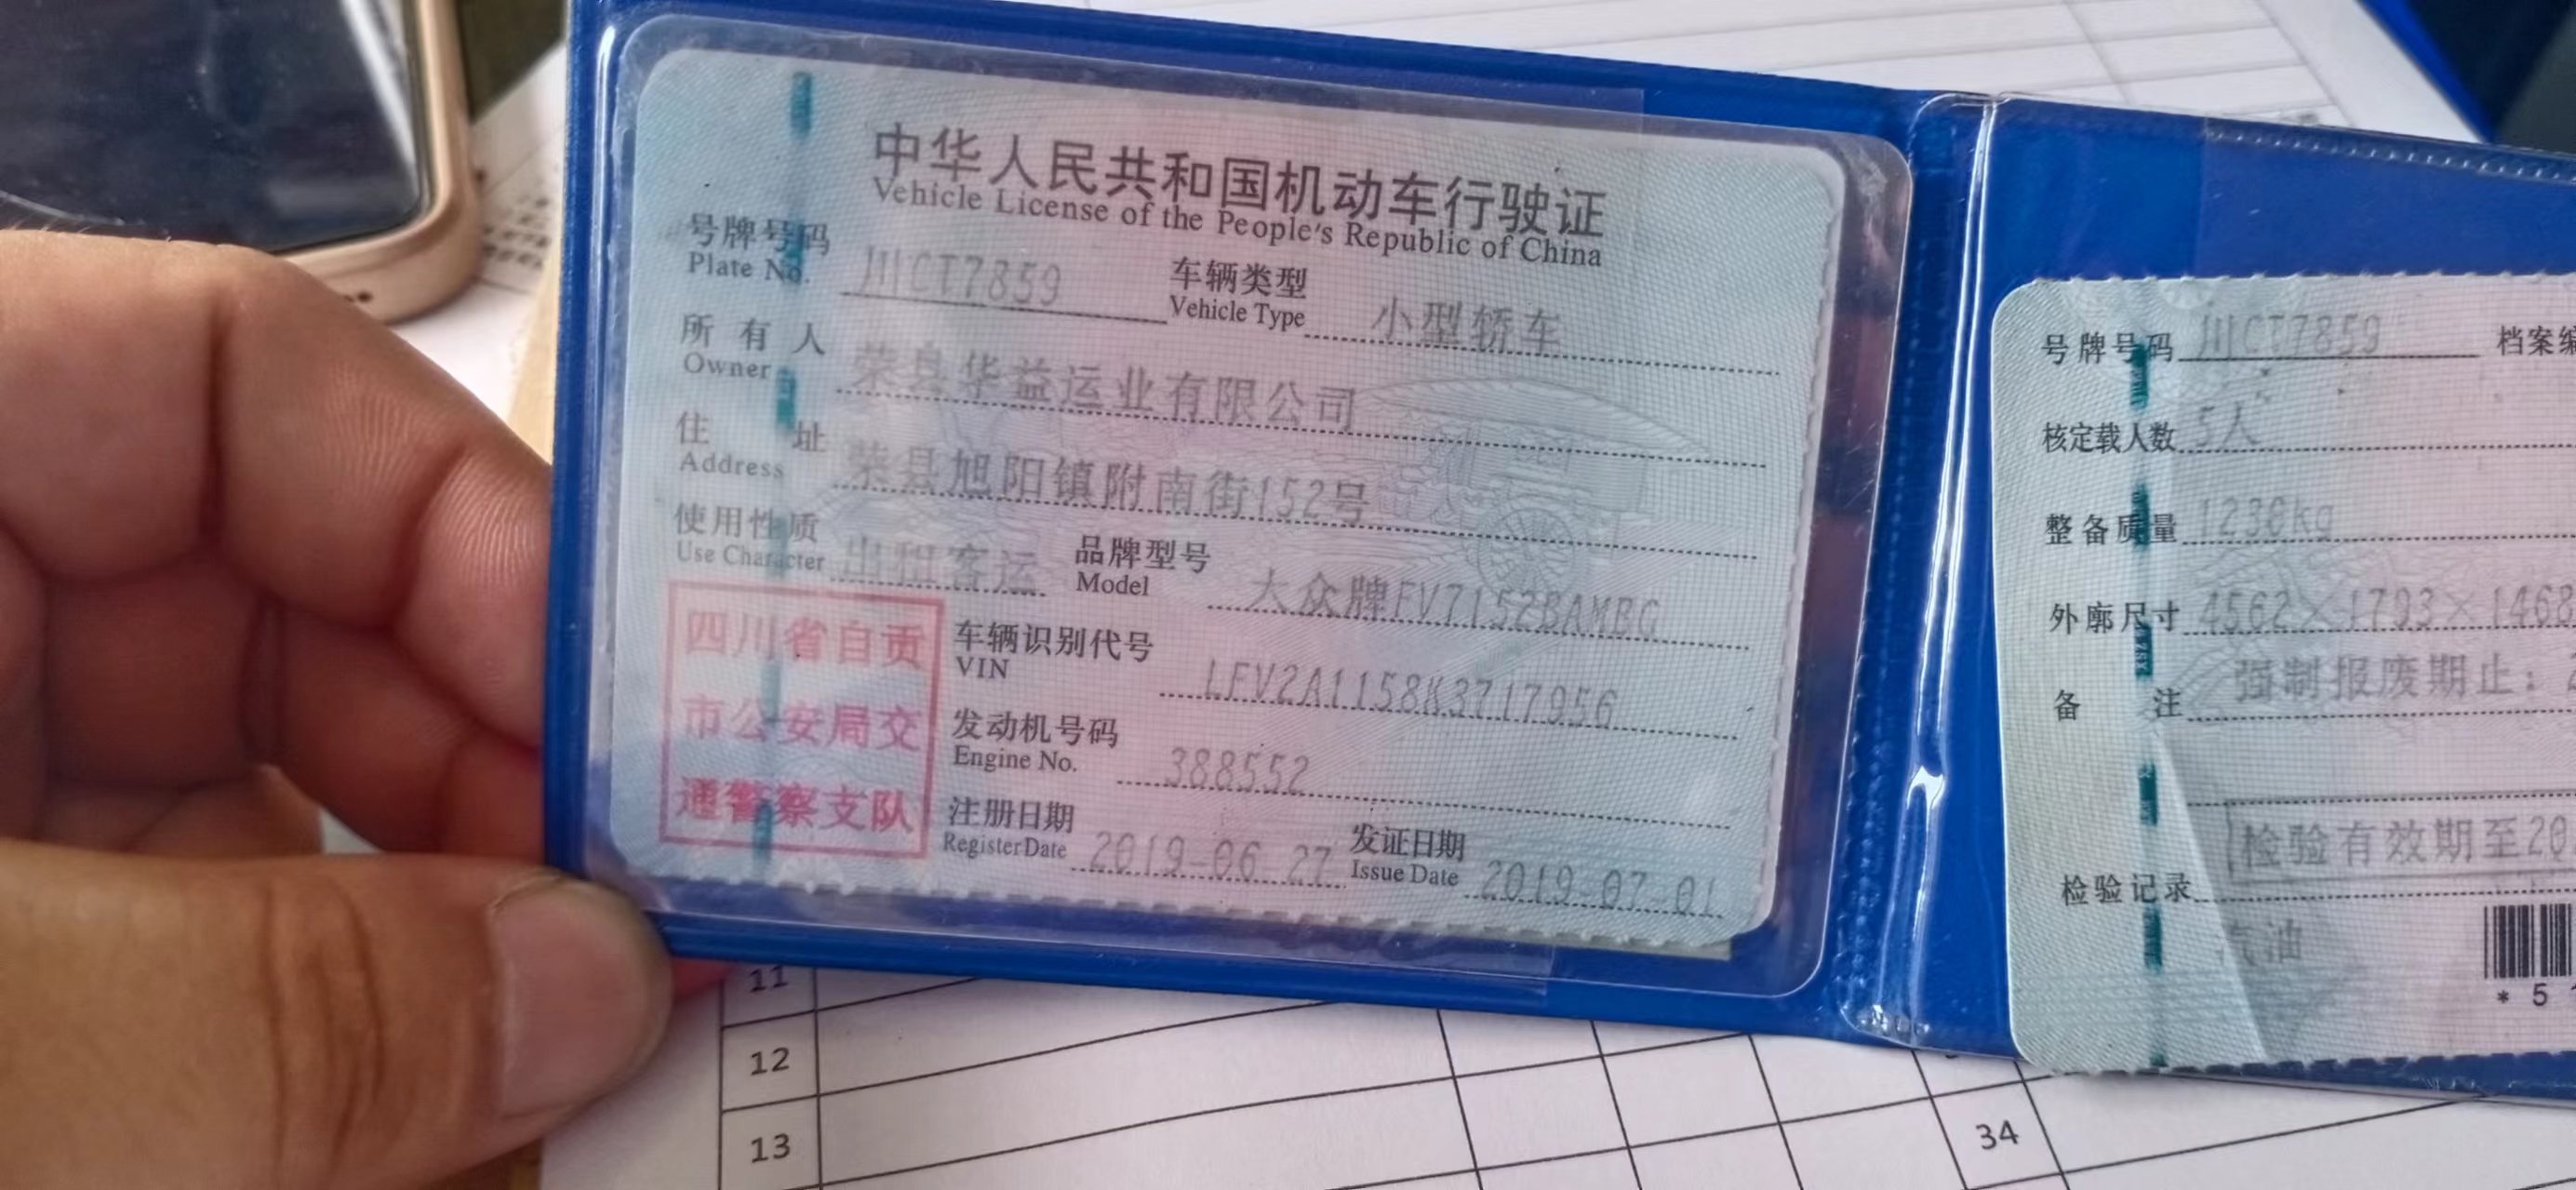 中华人民共和国机动车行驶证
Vehicle License of the People's Republic of China
号牌号码 川CT7859 车辆类型 小型轿车
Plate No. Vehicle Type
所有人 荣县华益运业有限公司
Owner
住址 荣县旭阳镇附南街152号
Address
使用性质 出租客运 品牌型号 大众牌FV7152BAMBG
Use Character Model
四川省自贡
市公安局交
通警察支队
车辆识别代号 LFV2A1158K3717956
VIN
发动机号码 388552
Engine No.
注册日期 2019-06-27 发证日期 2019-07-01
Register Date Issue Date
号牌号码 川CT7859 档案编
核定载人数 5人
整备质量 1230kg
外廓尺寸 4562×1793×1468
备注 强制报废期止：2
检验有效期至20
检验记录
汽油
* 5
11
12
13
34